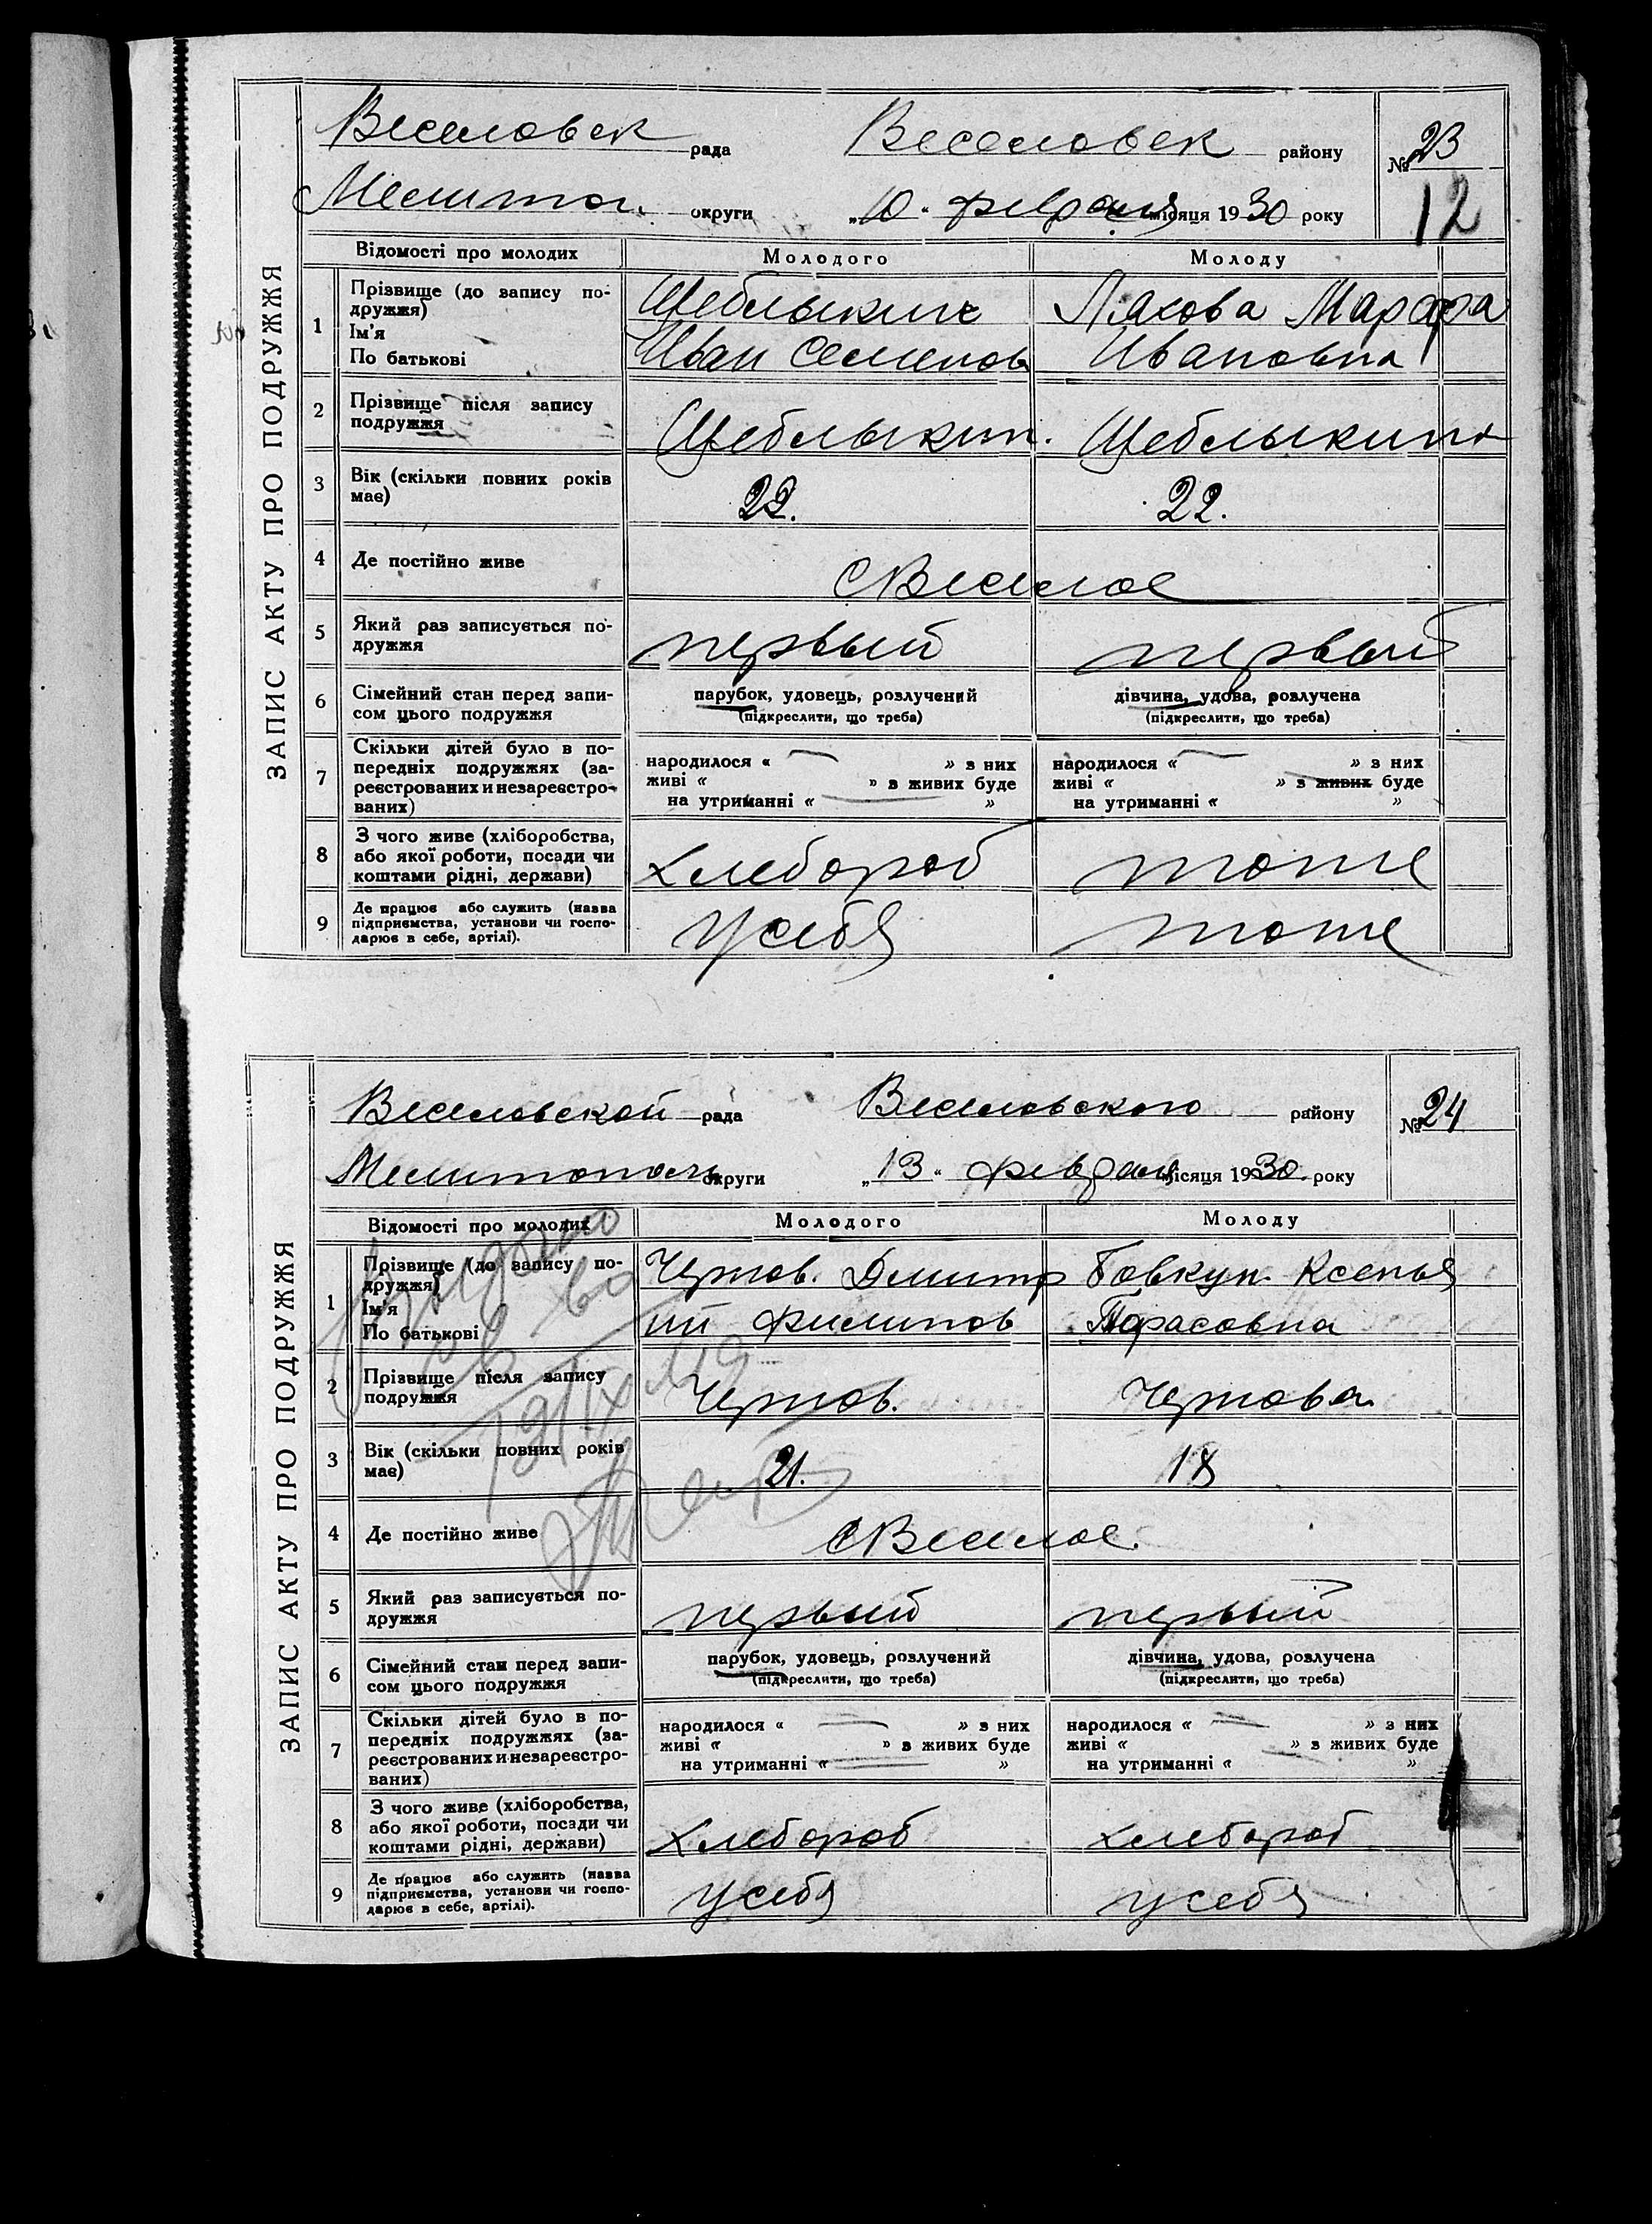 ЗАПИС АКТУ ПРО ПОДРУЖЖЯ
Веселовск рада Веселовск району № 23
Мелитоп. округи „10“ февраля місяця 1930 року 12
Відомості про молодих Молодого Молоду
1 Прізвище (до запису по- Щеблыкин Ляхова Марфа
дружжя)
Ім'я
По батькові Иван Семенов Ивановна
2 Прізвище після запису
подружжя Щеблыкин. Щеблыкина
3 Вік (скільки повних років
має) 22. 22.
4 Де постійно живе с Веселое
5 Який раз записується по-
дружжя первый первый
6 Сімейний стан перед запи- парубок, удовець, розлучений дівчина, удова, розлучена
сом цього подружжя (підкреслити, що треба) (підкреслити, що треба)
7 Скільки дітей було в по-
передніх подружжях (за-
реєстрованих и незареєстро-
ваних)
народилося « — » з них народилося « — » з них
живі « » з живих буде живі « » з живих буде
на утриманні « — » на утриманні « »
8 З чого живе (хліборобства,
або якої роботи, посади чи
коштами рідні, держави) хлебороб тоже
9 Де працює або служить (назва
підприємства, установи чи госпо-
дарює в себе, артілі). у себя тоже
ЗАПИС АКТУ ПРО ПОДРУЖЖЯ
Веселовской рада Веселовского району № 24
Мелитополь округи „13“ февраля місяця 1930. року
Відомості про молодих Молодого Молоду
1 Прізвище (до запису по- Чернов. Дмитр Бовкун. Ксенья
дружжя)
Ім'я
По батькові ий Филипов Тарасовна
2 Прізвище після запису
подружжя Чернов. Чернова.
3 Вік (скільки повних років
має) 21. 18
4 Де постійно живе с Веселое.
5 Який раз записується по-
дружжя первый первый
6 Сімейний стан перед запи- парубок, удовець, розлучений дівчина, удова, розлучена
сом цього подружжя (підкреслити, що треба) (підкреслити, що треба)
7 Скільки дітей було в по-
передніх подружжях (за-
реєстрованих и незареєстро-
ваних)
народилося « — » з них народилося « — » з них
живі « » з живих буде живі « » з живих буде
на утриманні « — » на утриманні « »
8 З чого живе (хліборобства,
або якої роботи, посади чи
коштами рідні, держави) хлебороб хлебороб
9 Де працює або служить (назва
підприємства, установи чи госпо-
дарює в себе, артілі). у себя у себя
Выдано
св во
19/IX 49